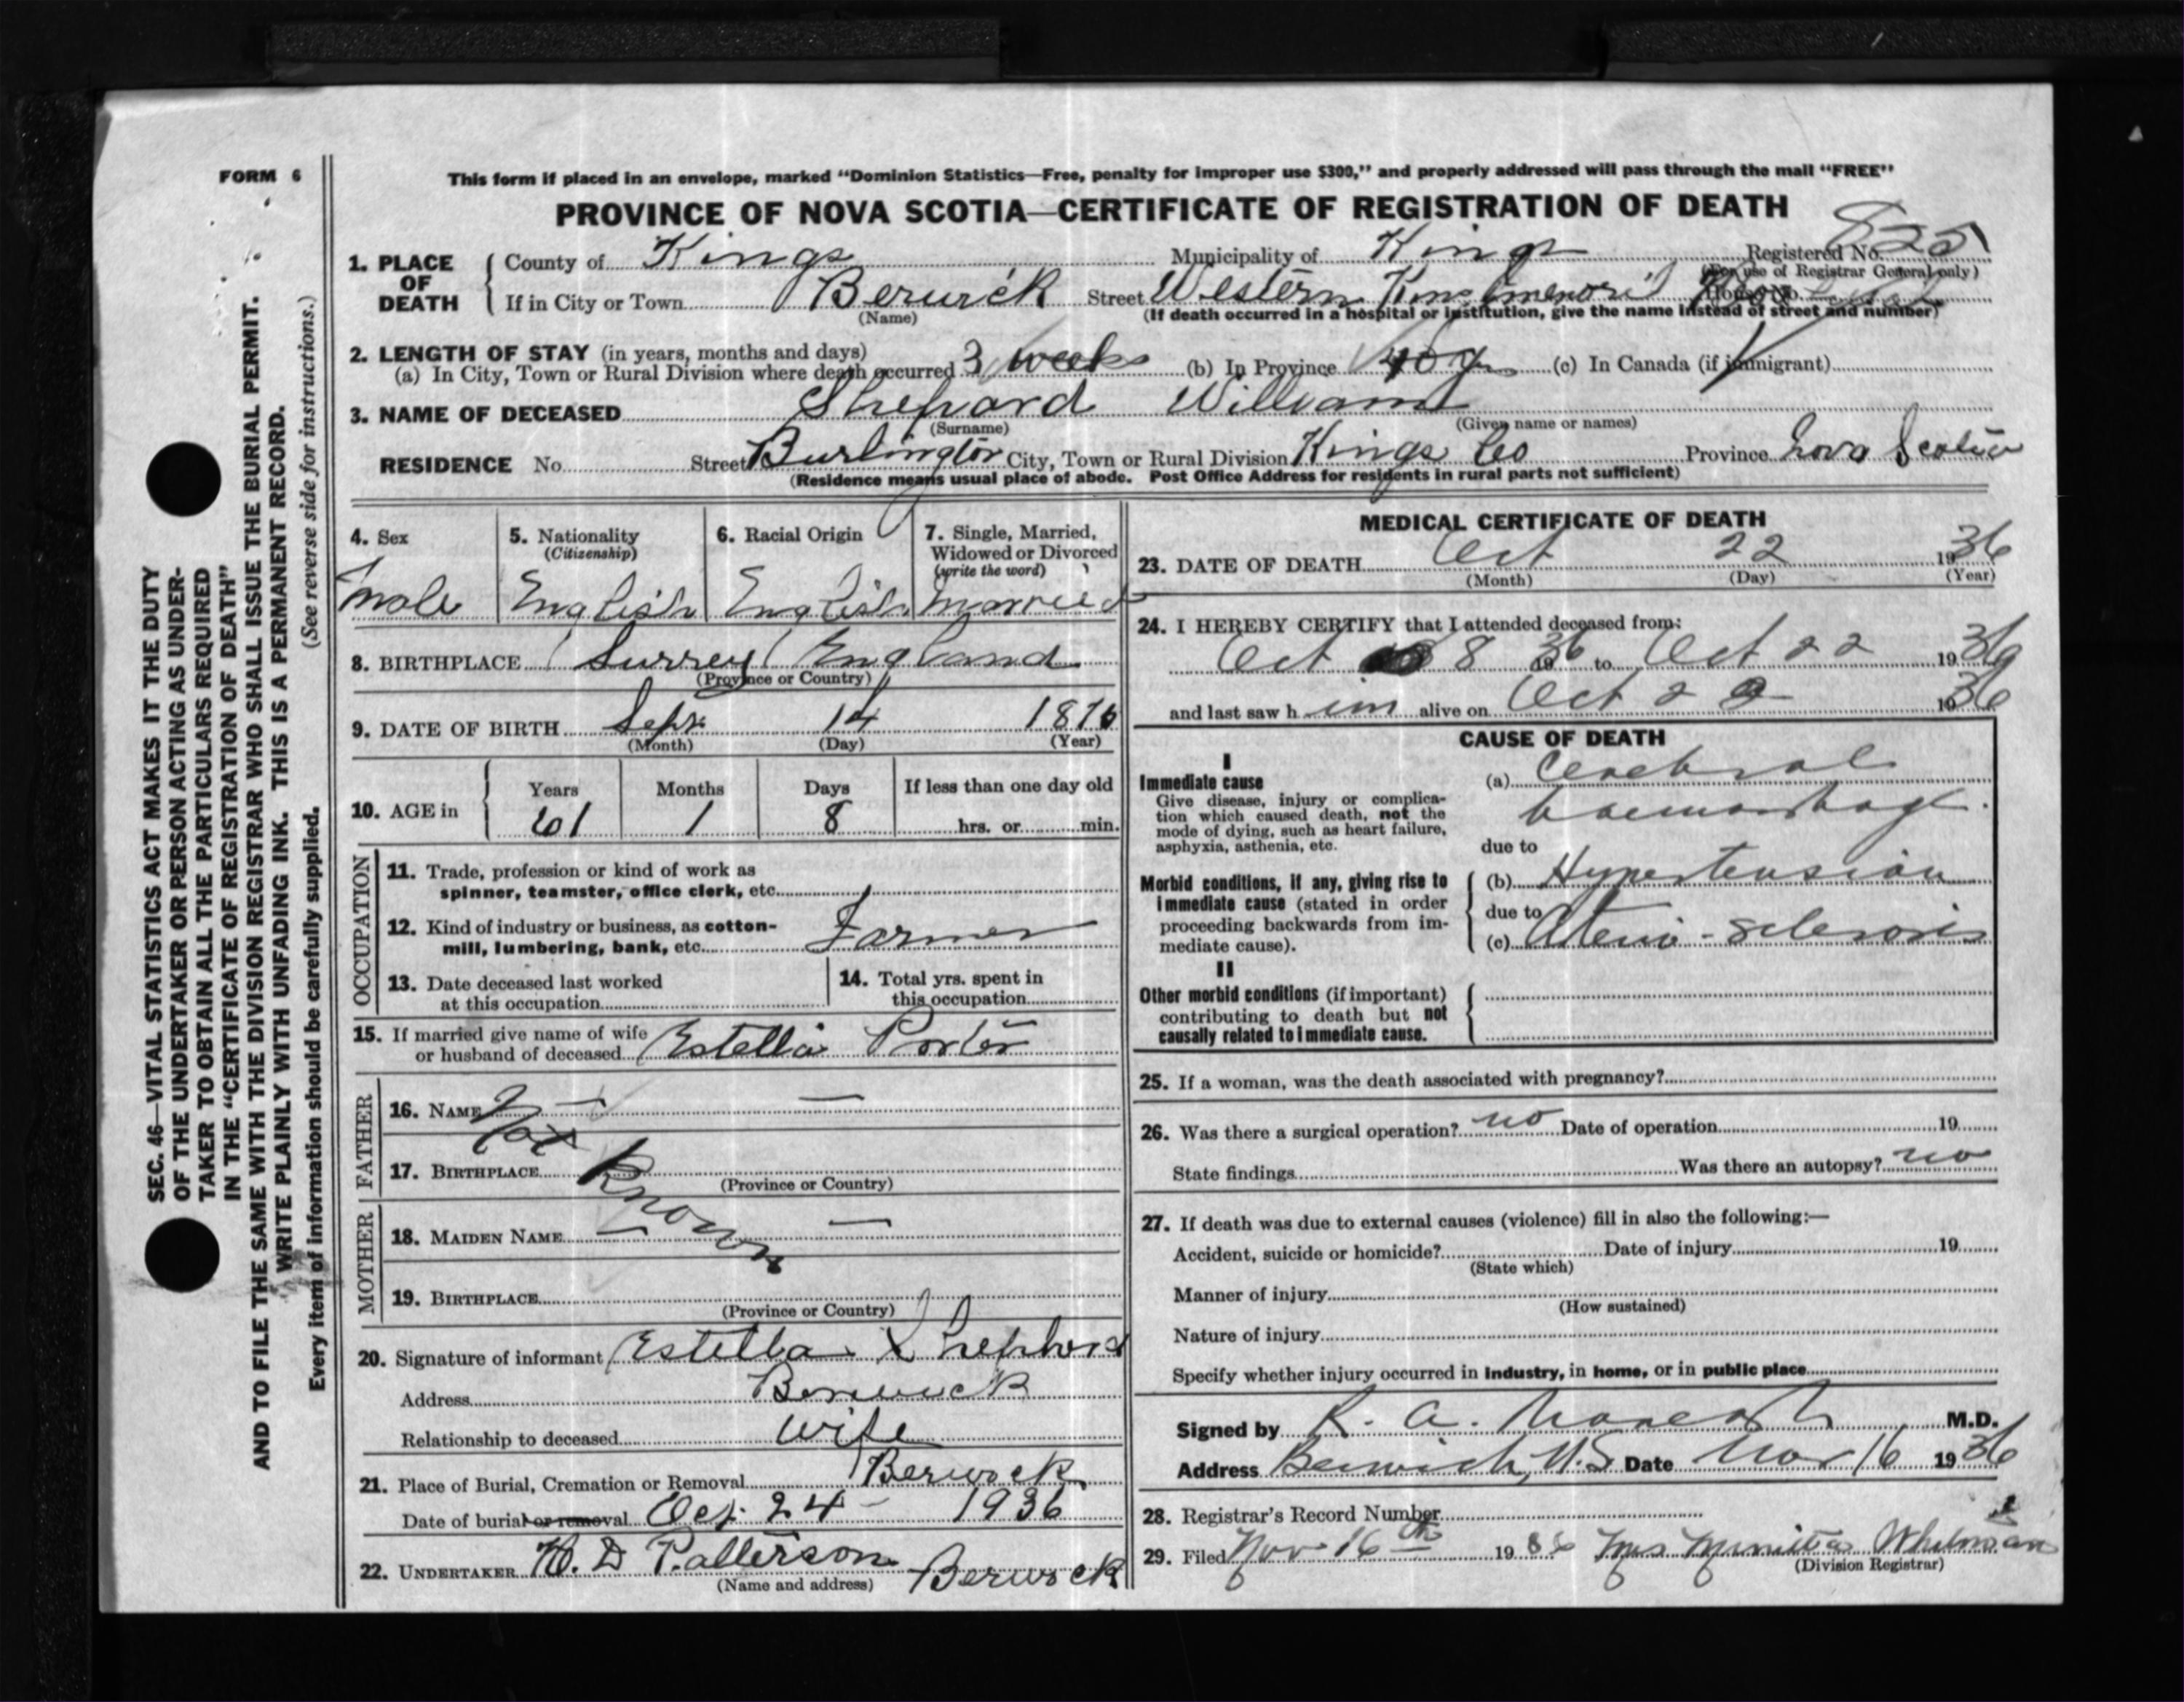 FORM 6
This form if placed in an envelope, marked "Dominion Statistics—Free, penalty for improper use $300," and properly addressed will pass through the mail "FREE"
PROVINCE OF NOVA SCOTIA—CERTIFICATE OF REGISTRATION OF DEATH
Registered No.
(For use of Registrar General only)
1. PLACE OF DEATH
County of Kings Municipality of Kings
If in City or Town Berwick Street Western Kings Memorial
(Name) (If death occurred in a hospital or institution, give the name instead of street and number)
2. LENGTH OF STAY (in years, months and days)
(a) In City, Town or Rural Division where death occurred 3 weeks (b) In Province 40 yrs (c) In Canada (if immigrant)
3. NAME OF DECEASED Shepard William
(Surname) (Given name or names)
RESIDENCE No. Street Burlington City, Town or Rural Division Kings Co Province Nova Scotia
(Residence means usual place of abode. Post Office Address for residents in rural parts not sufficient)
4. Sex
male
5. Nationality
(Citizenship)
English
6. Racial Origin
English
7. Single, Married, Widowed or Divorced
(write the word)
married
8. BIRTHPLACE Surrey England
(Province or Country)
9. DATE OF BIRTH Sept 14 1876
(Month) (Day) (Year)
10. AGE in
Years Months Days If less than one day old
61 1 8 hrs. or min.
OCCUPATION
11. Trade, profession or kind of work as
spinner, teamster, office clerk, etc.
12. Kind of industry or business, as cotton-
mill, lumbering, bank, etc. Farmer
13. Date deceased last worked
at this occupation
14. Total yrs. spent in
this occupation
15. If married give name of wife
or husband of deceased Estella Porter
FATHER
16. NAME
Not Known
17. BIRTHPLACE
(Province or Country)
MOTHER
18. MAIDEN NAME
19. BIRTHPLACE
(Province or Country)
20. Signature of informant Estella Shepherd
Address Berwick
Relationship to deceased wife
21. Place of Burial, Cremation or Removal Berwick
Date of burial or removal Oct. 24 - 1936
22. UNDERTAKER H. D Patterson Berwick
(Name and address)
MEDICAL CERTIFICATE OF DEATH
23. DATE OF DEATH Oct 22 1936
(Month) (Day) (Year)
24. I HEREBY CERTIFY that I attended deceased from:
Oct 8 1936 to Oct 22 1936
and last saw him alive on Oct 22 1936
CAUSE OF DEATH
I
Immediate cause
Give disease, injury or complica-
tion which caused death, not the
mode of dying, such as heart failure,
asphyxia, asthenia, etc.
(a) Cerebral
haemorrhage.
due to
Morbid conditions, if any, giving rise to
immediate cause (stated in order
proceeding backwards from im-
mediate cause).
(b) Hypertension
due to
(c) Aterio-sclerosis
II
Other morbid conditions (if important)
contributing to death but not
causally related to immediate cause.
25. If a woman, was the death associated with pregnancy?
26. Was there a surgical operation? no Date of operation 19
State findings Was there an autopsy? no
27. If death was due to external causes (violence) fill in also the following:—
Accident, suicide or homicide? Date of injury 19
(State which)
Manner of injury
(How sustained)
Nature of injury
Specify whether injury occurred in industry, in home, or in public place
Signed by R. A. M.D.
Address Berwick, N.S Date Nov 16 1936
28. Registrar's Record Number
29. Filed Nov 16th 1936 Mrs Whitman
(Division Registrar)
SEC. 46—VITAL STATISTICS ACT MAKES IT THE DUTY
OF THE UNDERTAKER OR PERSON ACTING AS UNDER-
TAKER TO OBTAIN ALL THE PARTICULARS REQUIRED
IN THE "CERTIFICATE OF REGISTRATION OF DEATH"
AND TO FILE THE SAME WITH THE DIVISION REGISTRAR WHO SHALL ISSUE THE BURIAL PERMIT.
WRITE PLAINLY WITH UNFADING INK. THIS IS A PERMANENT RECORD.
Every item of information should be carefully supplied. (See reverse side for instructions.)